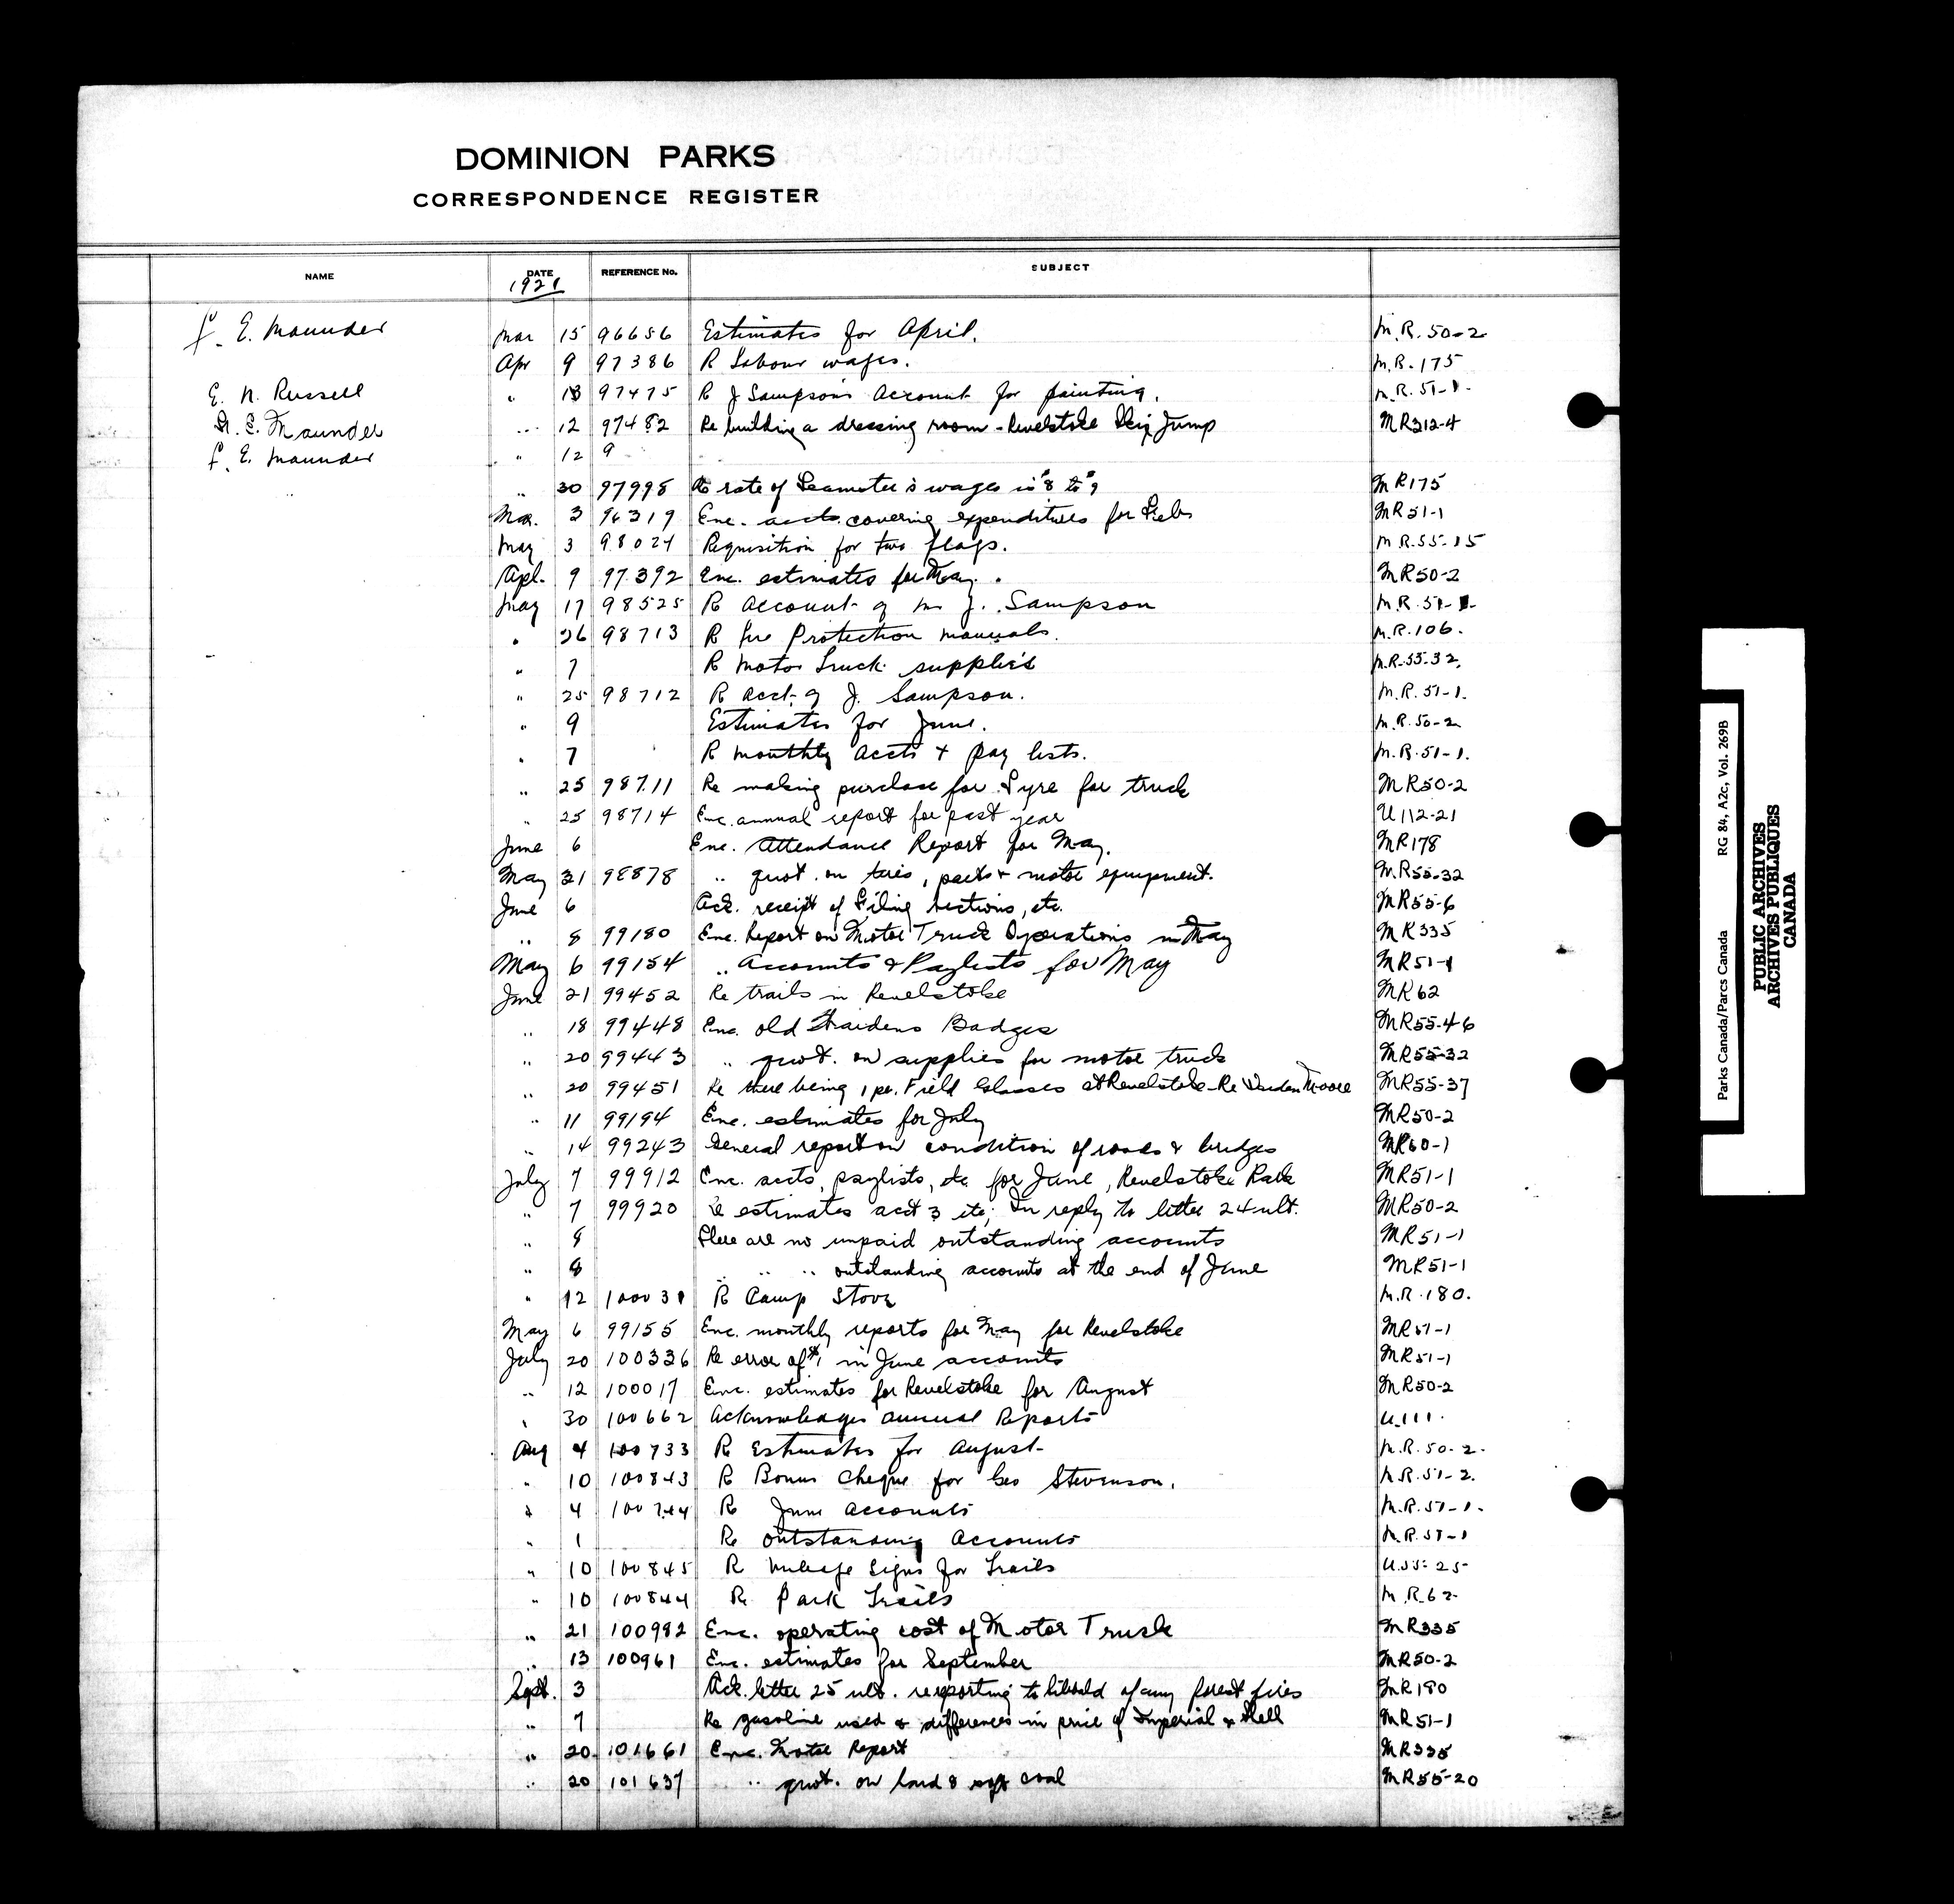 DOMINION PARKS
CORRESPONDENCE REGISTER
NAME DATE REFERENCE No. SUBJECT
1921
f. E. Maunder Mar 15 96656 Estimates for April. M.R. 50-2
Apr 9 97386 R Labour wages. M.R. 175
E. N. Russell " 13 97475 R J Sampson's Account for painting. M.R. 51-1
E. Maunder " 12 97482 Re building a dressing room - Revelstoke Ski Jump MR212-4
f. E. Maunder " 12 9
" 30 97998 Re rate of Teamster's wages is $8 to $9 MR175
Mar. 3 96319 Enc. accts. covering expenditures for Feb. MR51-1
May 3 98024 Requisition for two flags. M.R.55-15
Apl. 9 97392 Enc. estimates for May. MR50-2
May 17 98525 R Account of Mr J. Sampson M.R. 51-1
" 26 98713 R fire Protection manuals. M.R. 106.
" 7 R Motor Truck supplies M.R.55-32.
" 25 98712 R Acct. of J. Sampson. M.R. 51-1.
" 9 Estimates for June. M.R. 50-2
" 7 R monthly Accts + pay lists. M.R. 51-1.
" 25 98711 Re making purchase for Tyre for truck MR50-2
" 25 98714 Enc. annual report for past year U112-21
June 6 Enc. Attendance Report for May. MR178
May 31 98878 " quot. on tires, parts + motor equipment. M.R55-32
June 6 Ack. receipt of Filing sections, etc. MR55-6
" 8 99180 Enc. Report on Motor Truck Operations in May MR335
May 6 99154 " Accounts & Paylists for May MR51-1
June 21 99452 Re trails in Revelstoke MR62
" 18 99448 Enc. old Wardens Badges MR55-46
" 20 99443 " quot. on supplies for motor truck MR55-32
" 20 99451 Re there being 1 pr. Field Glasses at Revelstoke - Re Warden Moore MR55-37
" 11 99194 Enc. estimates for July MR50-2
" 14 99243 General report on condition of roads & bridges MR60-1
July 7 99912 Enc. accts, paylists, etc for June, Revelstoke Park MR51-1
" 7 99920 Re estimates acct 3 etc; In reply to letter 24 ult. MR50-2
" 8 There are no unpaid outstanding accounts MR51-1
" 8 " " " outstanding accounts at the end of June MR51-1
" 12 100031 R Camp Stove M.R. 180.
May 6 99155 Enc. monthly reports for May for Revelstoke MR51-1
July 20 100336 Re error of $1 in June accounts MR51-1
" 12 100017 Enc. estimates for Revelstoke for August MR50-2
" 30 100662 Acknowledges annual Reports U.111.
Aug 4 100733 R Estimates for August M.R. 50-2.
" 10 100843 R Bonus Cheque for Geo Stevenson. M.R. 51-2.
" 4 100744 R June Accounts M.R. 51-1.
" 1 R outstanding Accounts M.R. 51-1
" 10 100845 R Mileage Signs for Trails U.55-25
" 10 100844 R Park Trails M.R.62
" 21 100982 Enc. operating cost of Motor Truck MR335
" 13 100961 Enc. estimates for September MR50-2
Sept. 3 Ack. letter 25 ult. re reporting to of any forest fires MR180
" 7 Re gasoline used & differences in price of Imperial & Shell MR51-1
" 20 101661 Enc. Motor Report MR335
" 20 101637 " quot. on hard & soft coal MR55-20
Parks Canada/Parcs Canada RG 84, A2c, Vol. 269B
PUBLIC ARCHIVES
ARCHIVES PUBLIQUES
CANADA